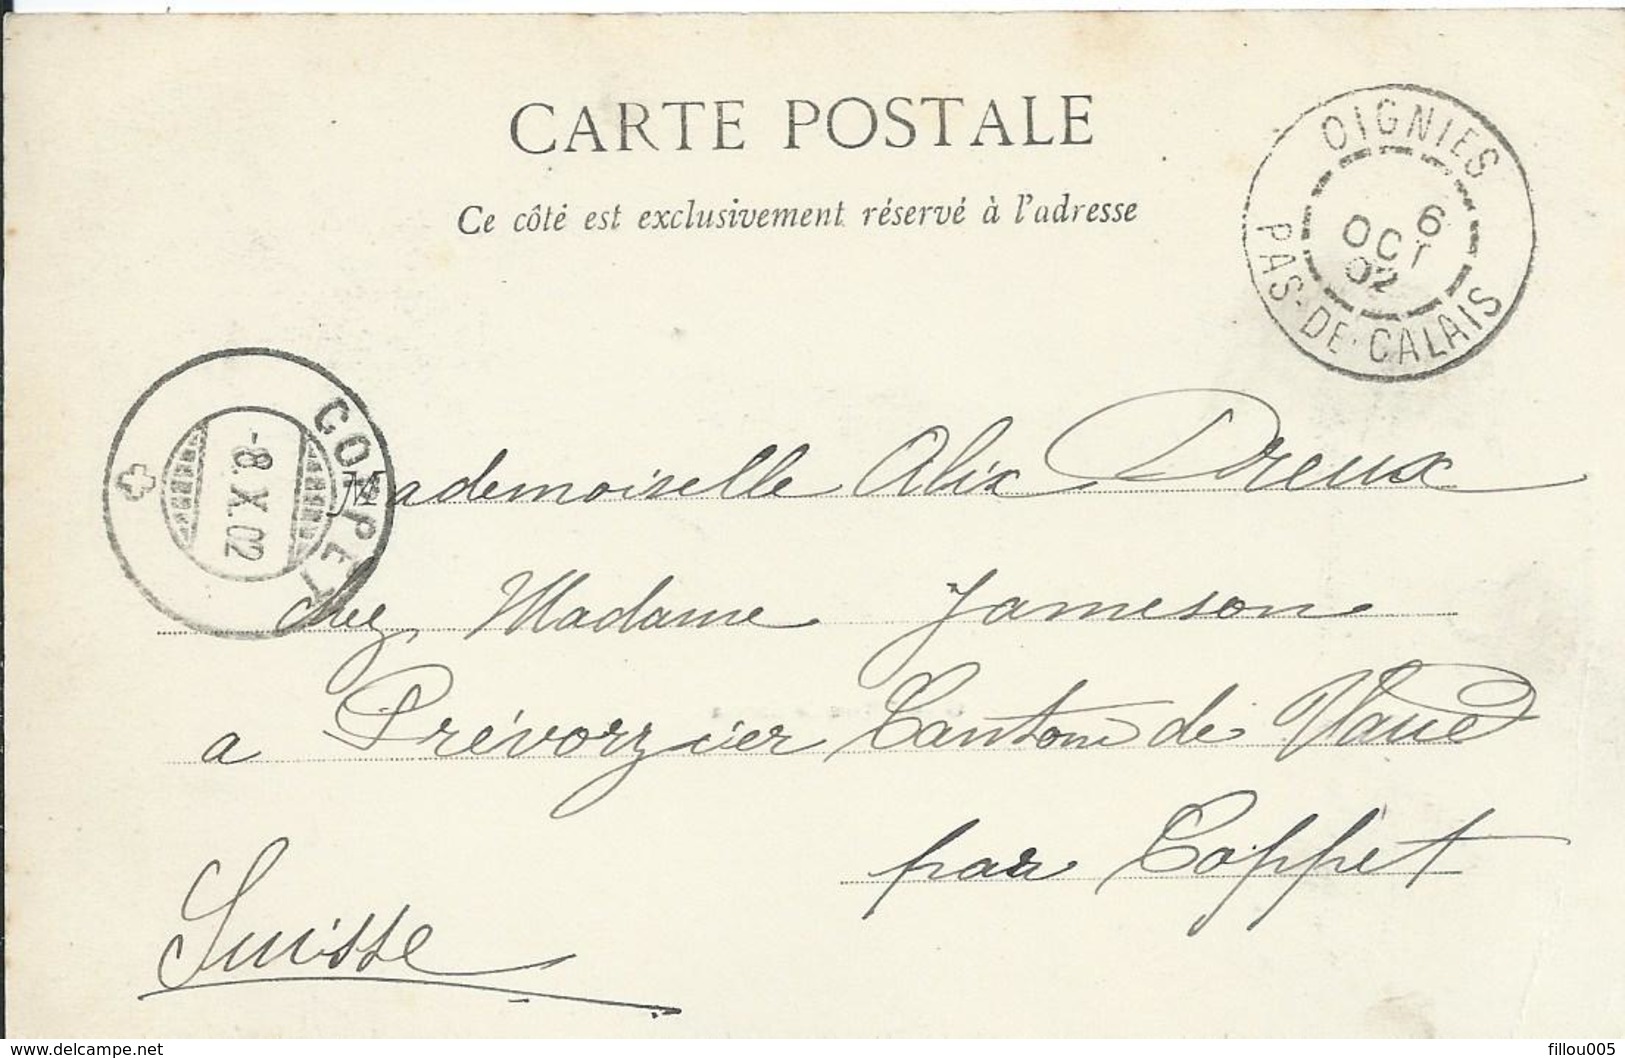 CARTE POSTALE
Ce côté est exclusivement réservé à l'adresse
OIGNIES
6
OCT
02
PAS-DE-CALAIS
COPPET
-8.X.02
Mademoiselle Alix Dreux
chez Madame Jameson
a Prévorzier Canton de Vaud
par Coppet
Suisse
www.delcampe.net
fillou005